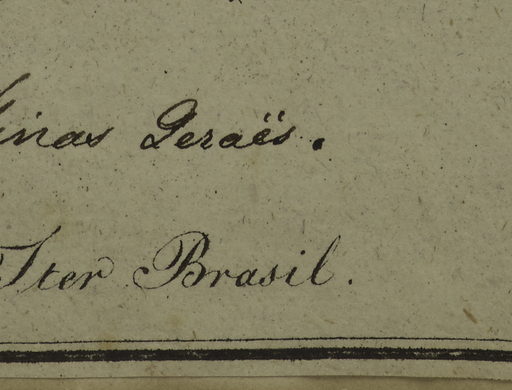 inas Geraës.
Iter Brasil.